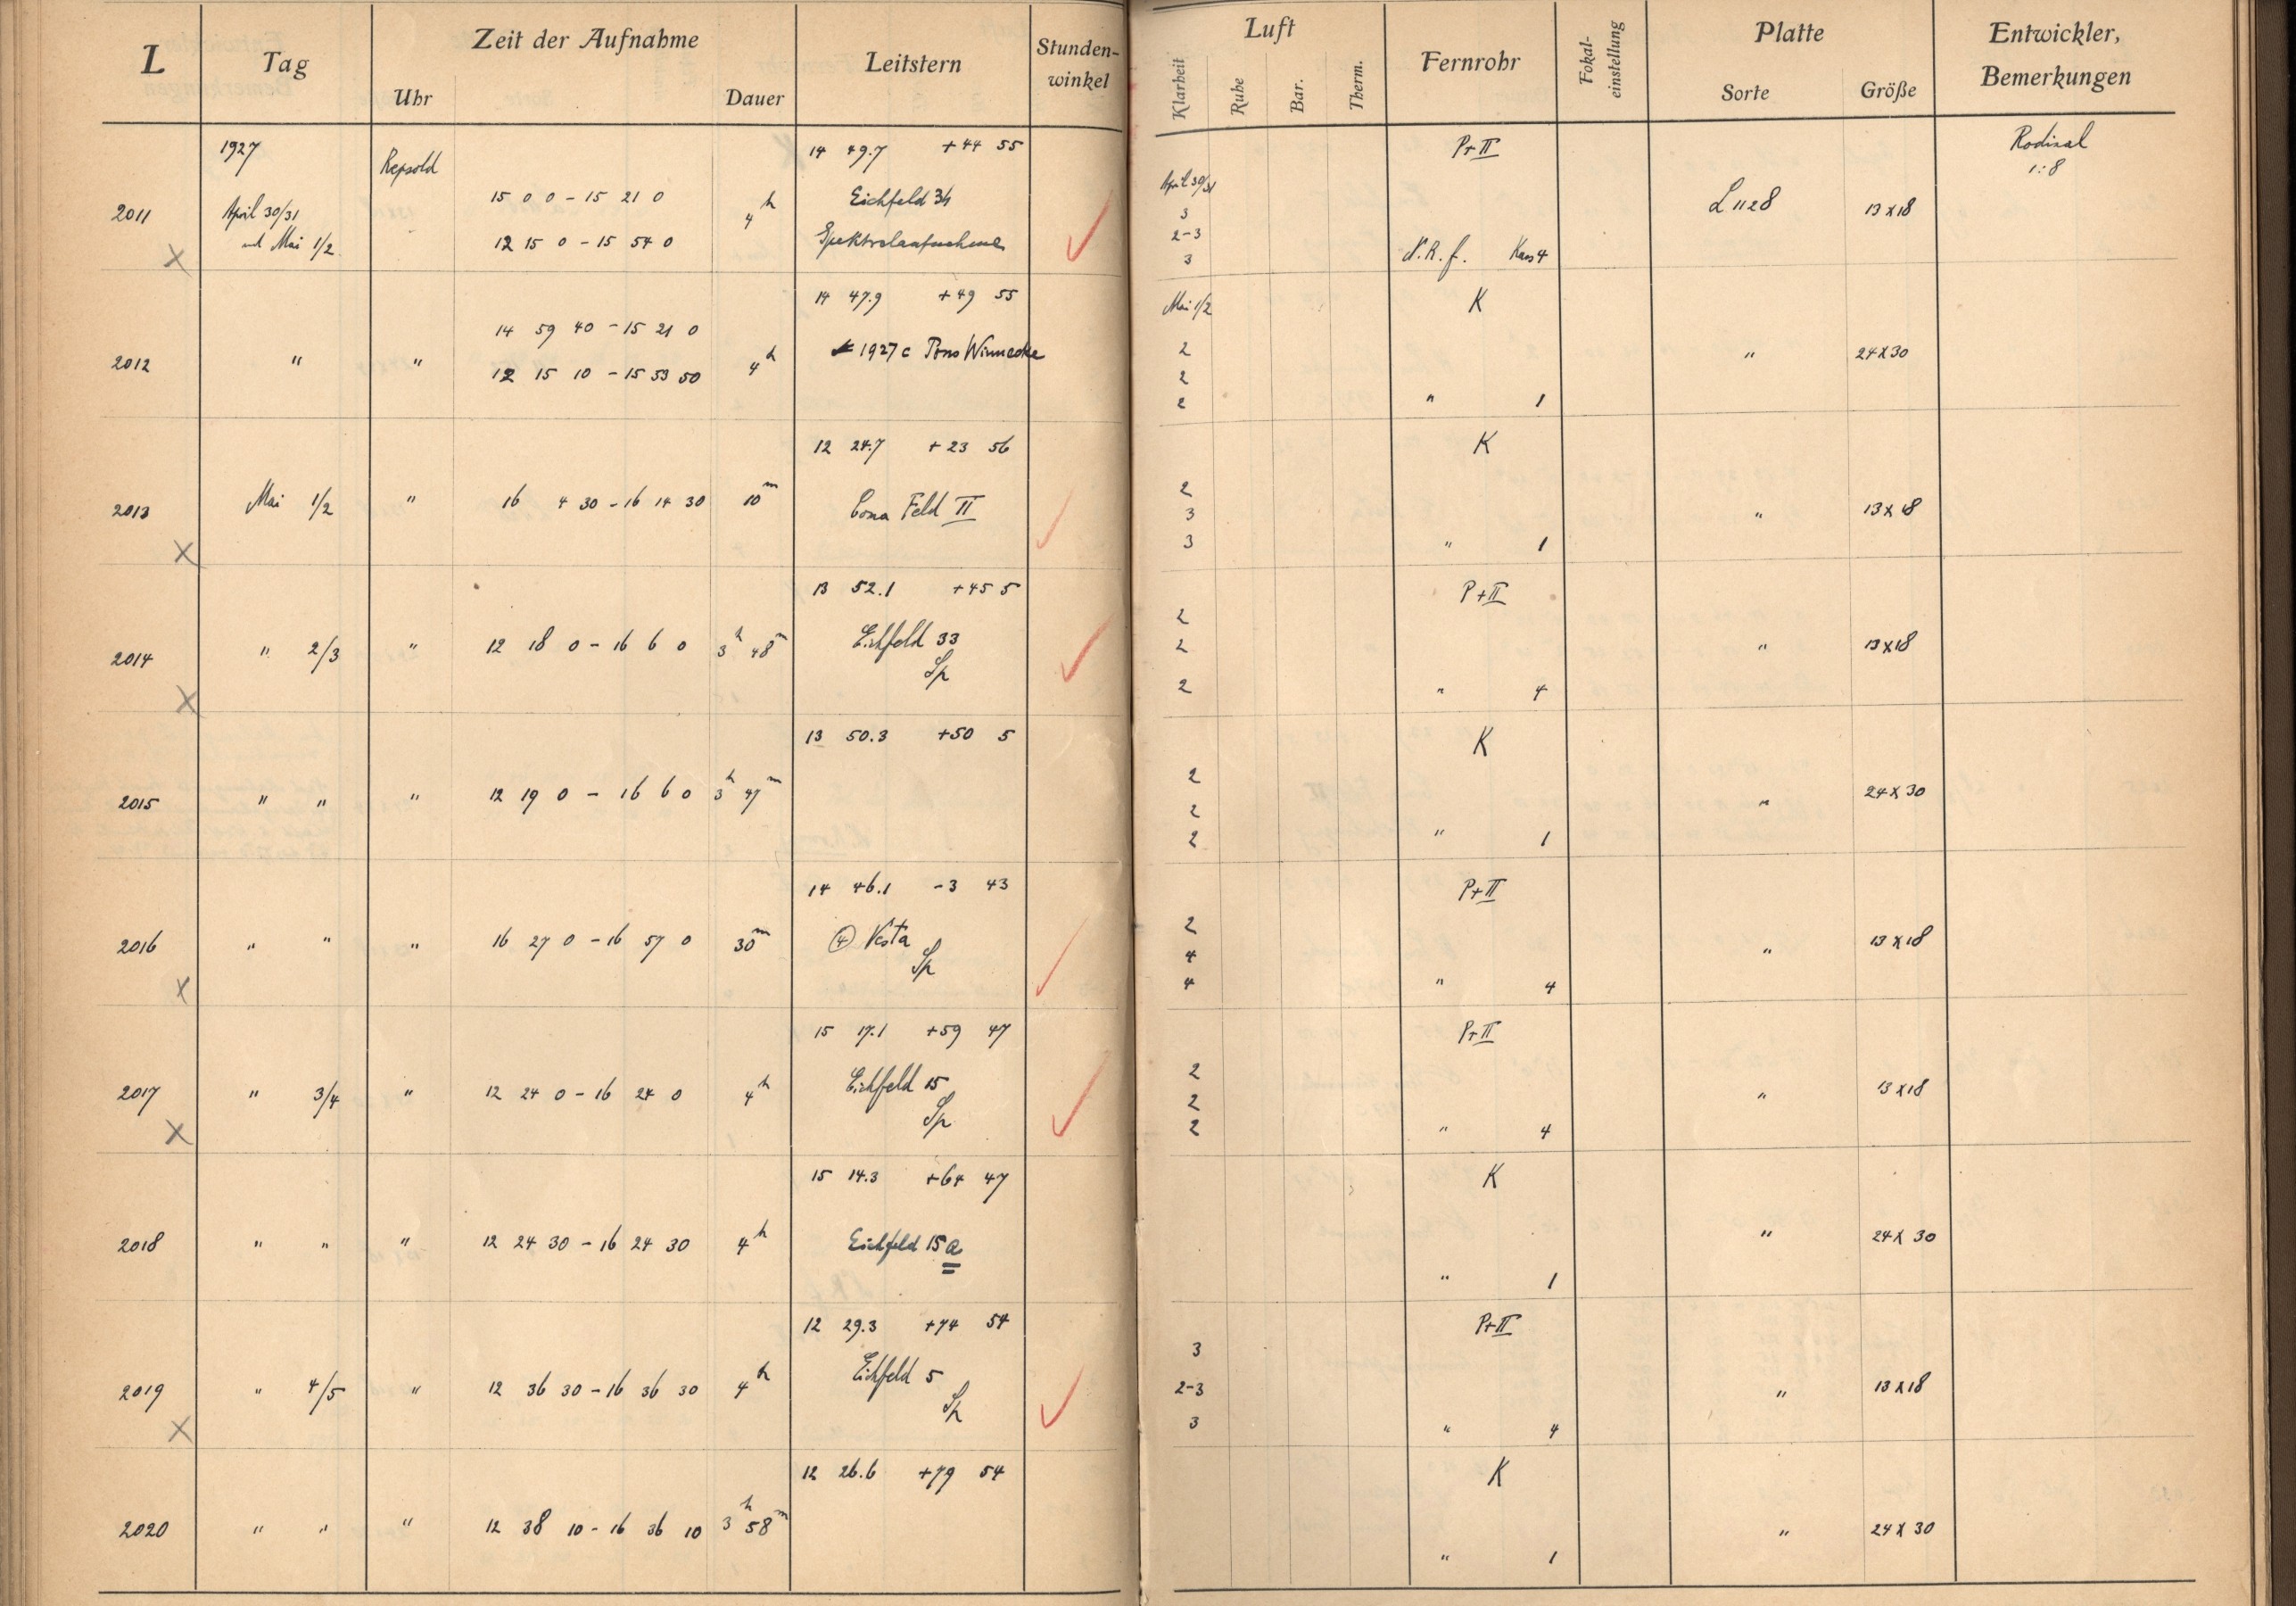 L Tag Zeit der Aufnahme Leitstern Stunden-winkel Luft Fernrohr Fokal-einstellung Platte Entwickler, Bemerkungen
Uhr Dauer Klarheit Ruhe Bar. Therm. Sorte Größe
1927 Repsold 14 49.7 +44 55 P+II Rodinal
1:8
April 30/31
15 0 0 - 15 21 0 Eichfeld 34 3
2011 April 30/31 4h L 1128 13x18
und Mai 1/2 12 15 0 - 15 54 0 Spektralaufnahme 2-3
X 3 N.R.f. Kass 4
14 47.9 +49 55 Mai 1/2 K
14 59 40 - 15 21 0
2012 " " 4h 1927c Pons Winnecke 2 " 24x30
12 15 10 - 15 53 50 2
2 " 1
12 24.7 +23 56 K
2
2013 Mai 1/2 " 16 4 30 - 16 14 30 10m Coma Feld II 3 " 13x18
X 3 " 1
13 52.1 +45 5 P+II
2
2014 " 2/3 " 12 18 0 - 16 6 0 3h 48m Eichfeld 33 2 " 13x18
Sp
X 2 " 4
13 50.3 +50 5 K
2
2015 " " " 12 19 0 - 16 6 0 3h 47m 2 " 24x30
2 " 1
14 46.1 -3 43 P+II
2
2016 " " " 16 27 0 - 16 57 0 30m (4) Vesta 4 " 13x18
Sp
X 4 " 4
15 17.1 +59 47 P+II
2
2017 " 3/4 " 12 24 0 - 16 24 0 4h Eichfeld 15 2 " 13x18
Sp
X 2 " 4
15 14.3 +64 47 K
2018 " " " 12 24 30 - 16 24 30 4h Eichfeld 15a " 24x30
" 1
12 29.3 +74 54 P+II
3
2019 " 4/5 " 12 36 30 - 16 36 30 4h Eichfeld 5 2-3 " 13x18
Sp
X 3 " 4
12 26.6 +79 54 K
2020 " " " 12 38 10 - 16 36 10 3h 58m " 24x30
" 1